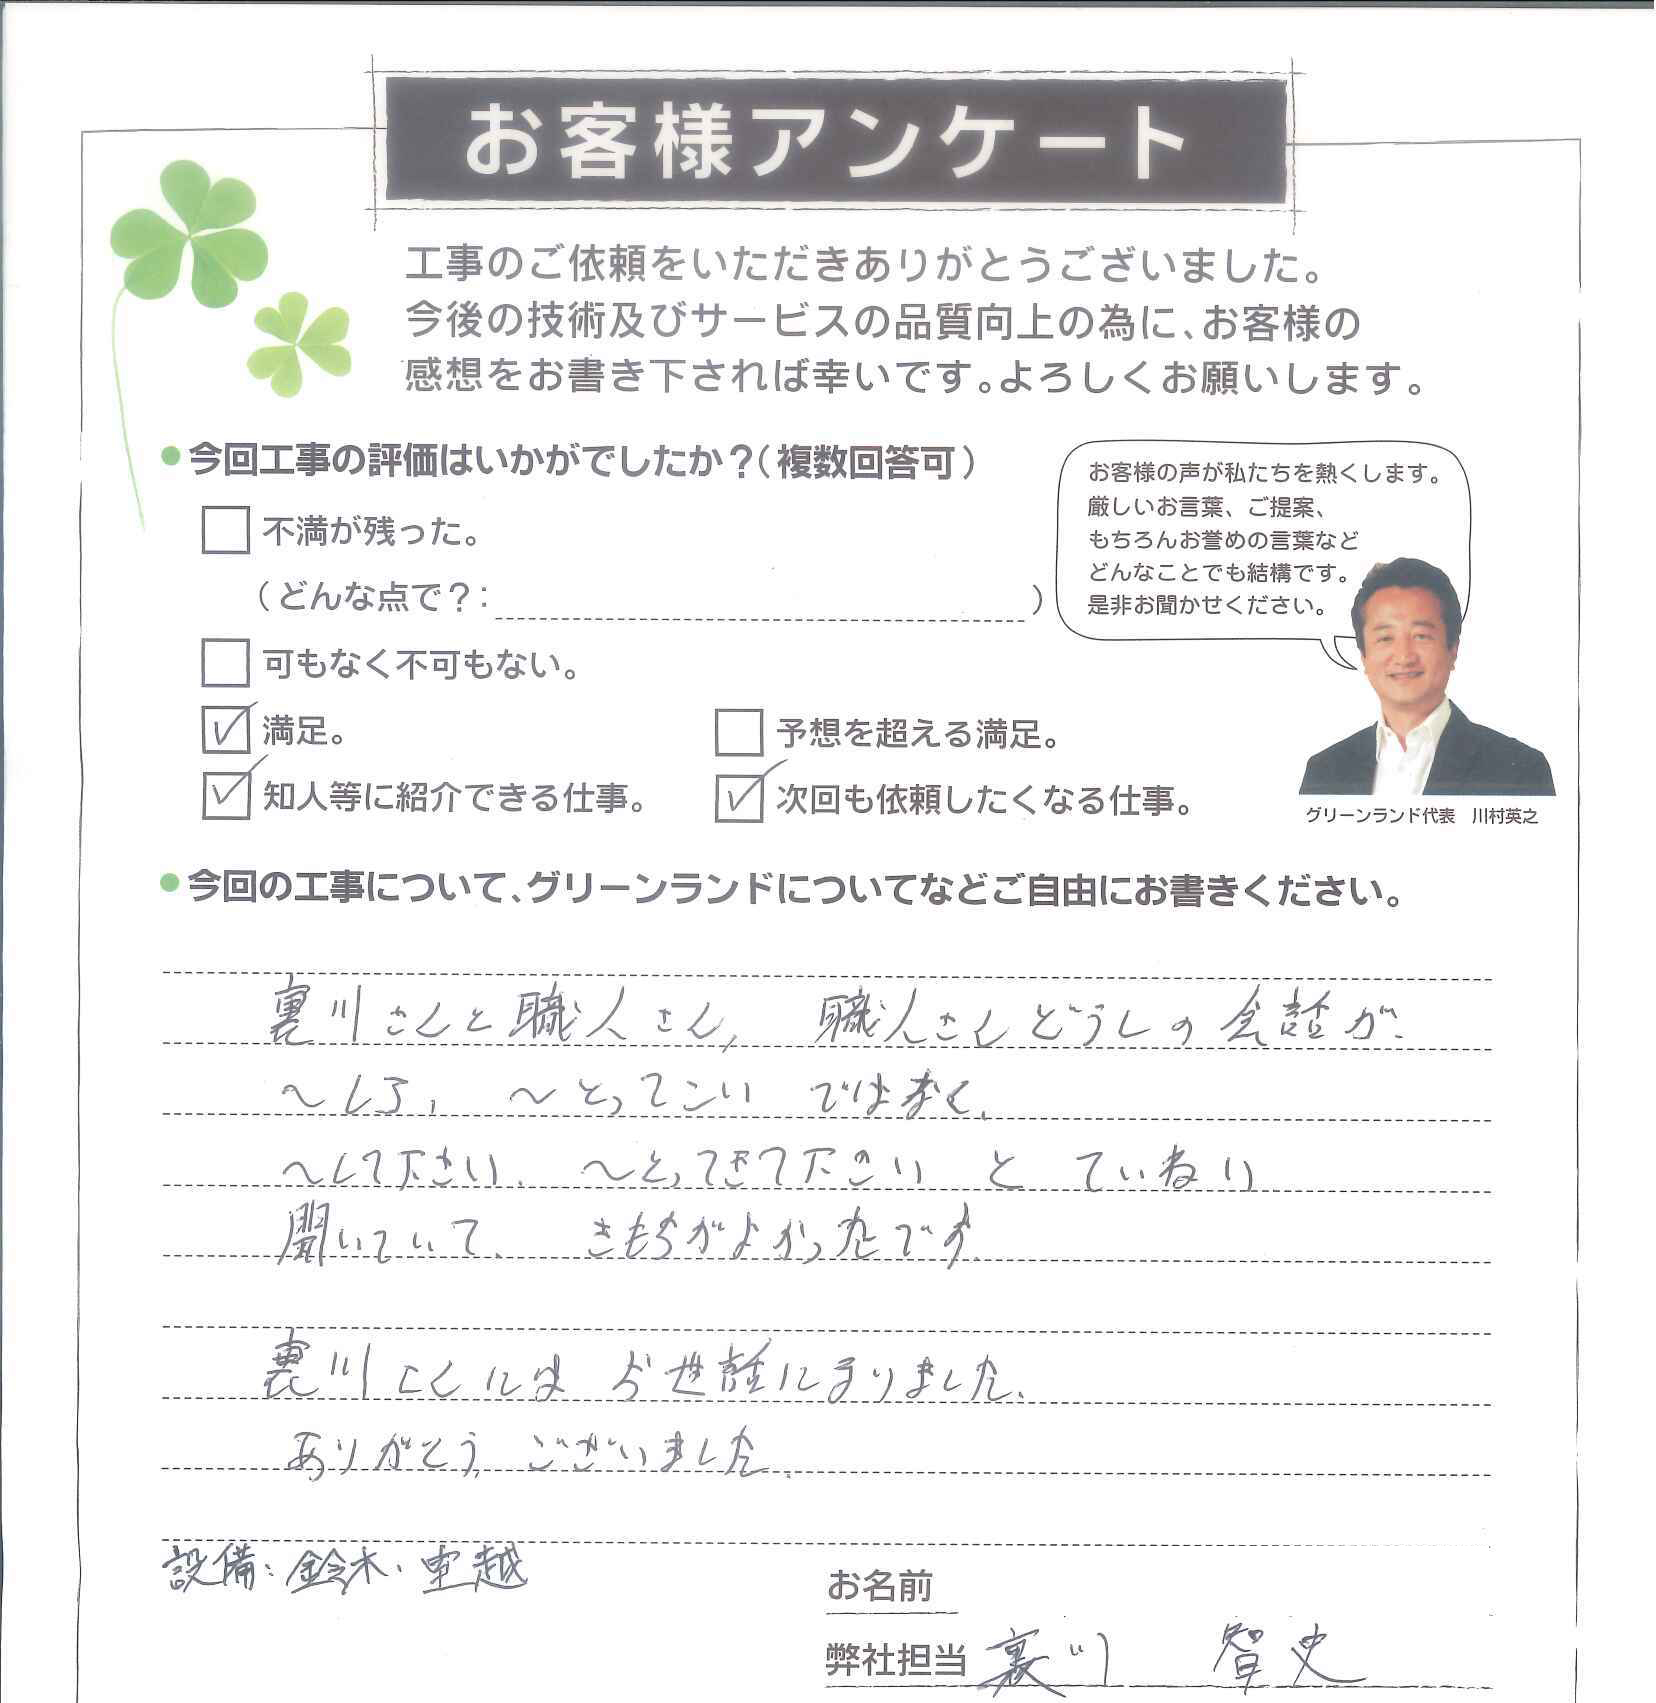 お客様アンケート
工事のご依頼をいただきありがとうございました。
今後の技術及びサービスの品質向上の為に、お客様の
感想をお書き下されば幸いです。よろしくお願いします。
●今回工事の評価はいかがでしたか？（複数回答可）
不満が残った。
（どんな点で？：　）
可もなく不可もない。
満足。
予想を超える満足。
知人等に紹介できる仕事。
次回も依頼したくなる仕事。
お客様の声が私たちを熱くします。
厳しいお言葉、ご提案、
もちろんお誉めの言葉など
どんなことでも結構です。
是非お聞かせください。
グリーンランド代表　川村英之
●今回の工事について、グリーンランドについてなどご自由にお書きください。
裏川さんと職人さん, 職人さんどうしの会話が、
〜しろ, 〜とってこい ではなく、
〜して下さい、 〜とってきて下さい と ていねい
聞いていて、 きもちがよかったです。
裏川さんには お世話になりました、
ありがとう ございました、
設備：鈴木・
お名前
弊社担当 裏川 智史